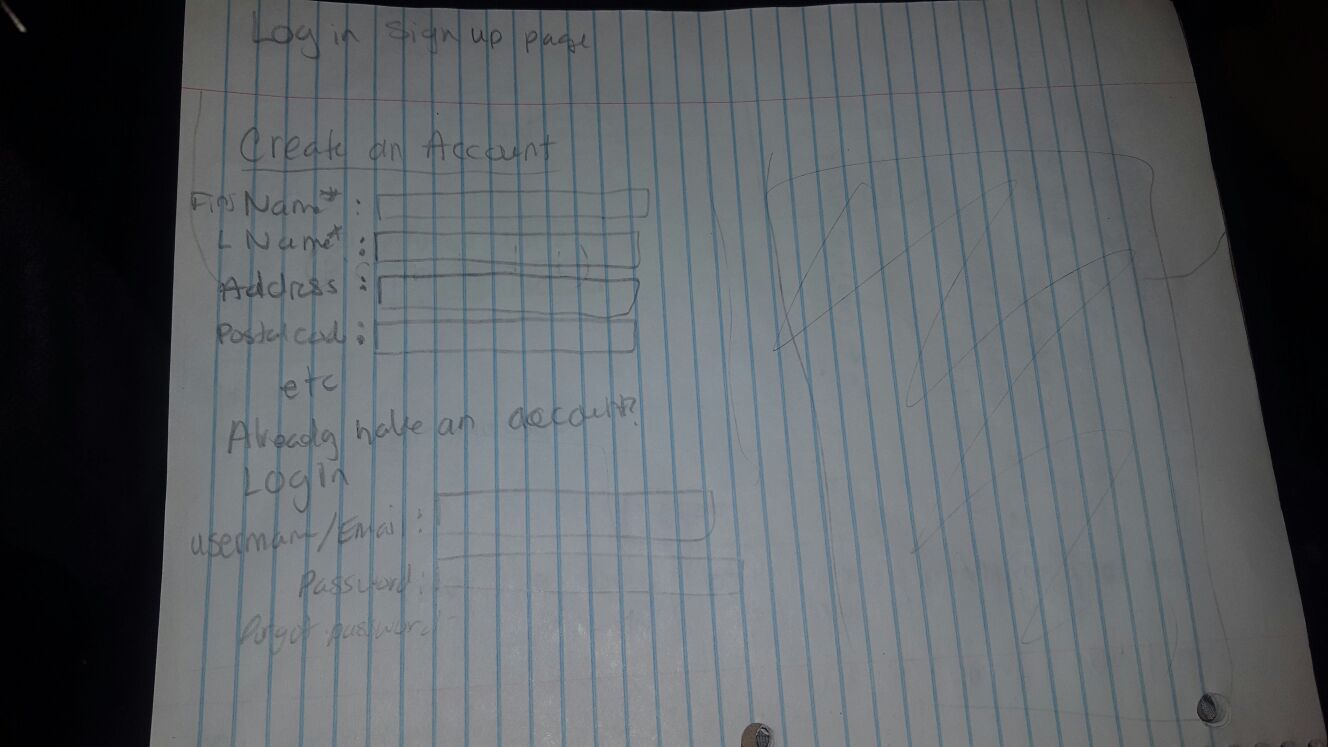 Log in Sign up page
Create an Account
Firs Name* :
L Name* :
Address :
Postal cod :
etc
Already have an account?
Login
username/Email :
Password :
Forgot password